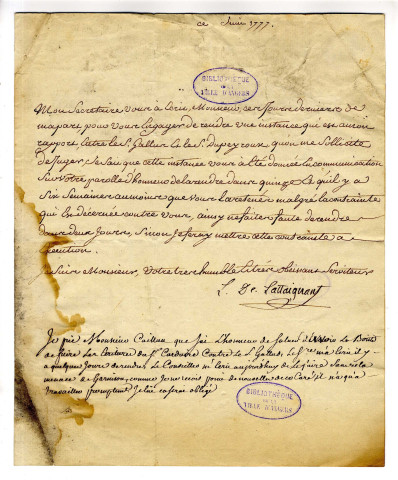 ce Juin 1777.
BIBLIOTHEQUE
DE LA
VILLE D'ANGERS
Mon Secretaire vous à Ecrit, Monsieur, ces Jours derniers de
mapart, pour vous Engager de rendre une instance qui est au son
rapport Entre les S. Gallur Et le S. Dupeyroux quon me sollicite
de Juger, Je scai que cette instance vous à été donnée En communication
Sur Votre parolle d'honneur de la rendre dans quinze Et quil y a
Six Semaines aumoins que vous la retenez malgré la contrainte
qui Est décernée contre vous, ainsy ne faites faute de rendre
dans deux Jours, Sinon Je feray mettre cette contrainte a
Execution.
Monsieur, Votre tres humble Et tres obeissant Serviteur
L. De Lattaignant
Je prie Monsieur que J'ai L'honneur de Saluer
de faire les Ecritures du Sr Contre le S. Gallur, le Sr ma Ecrit il y
a quelques Jours de rendre, le Conseiller m'Ecrit aujourdhuy
menace de Garnison, comme Je ne recois point de nouvelles
travailler promptement Je lui En seray obligé
BIBLIOTHÈQUE
DE LA
VILLE D'ANGERS